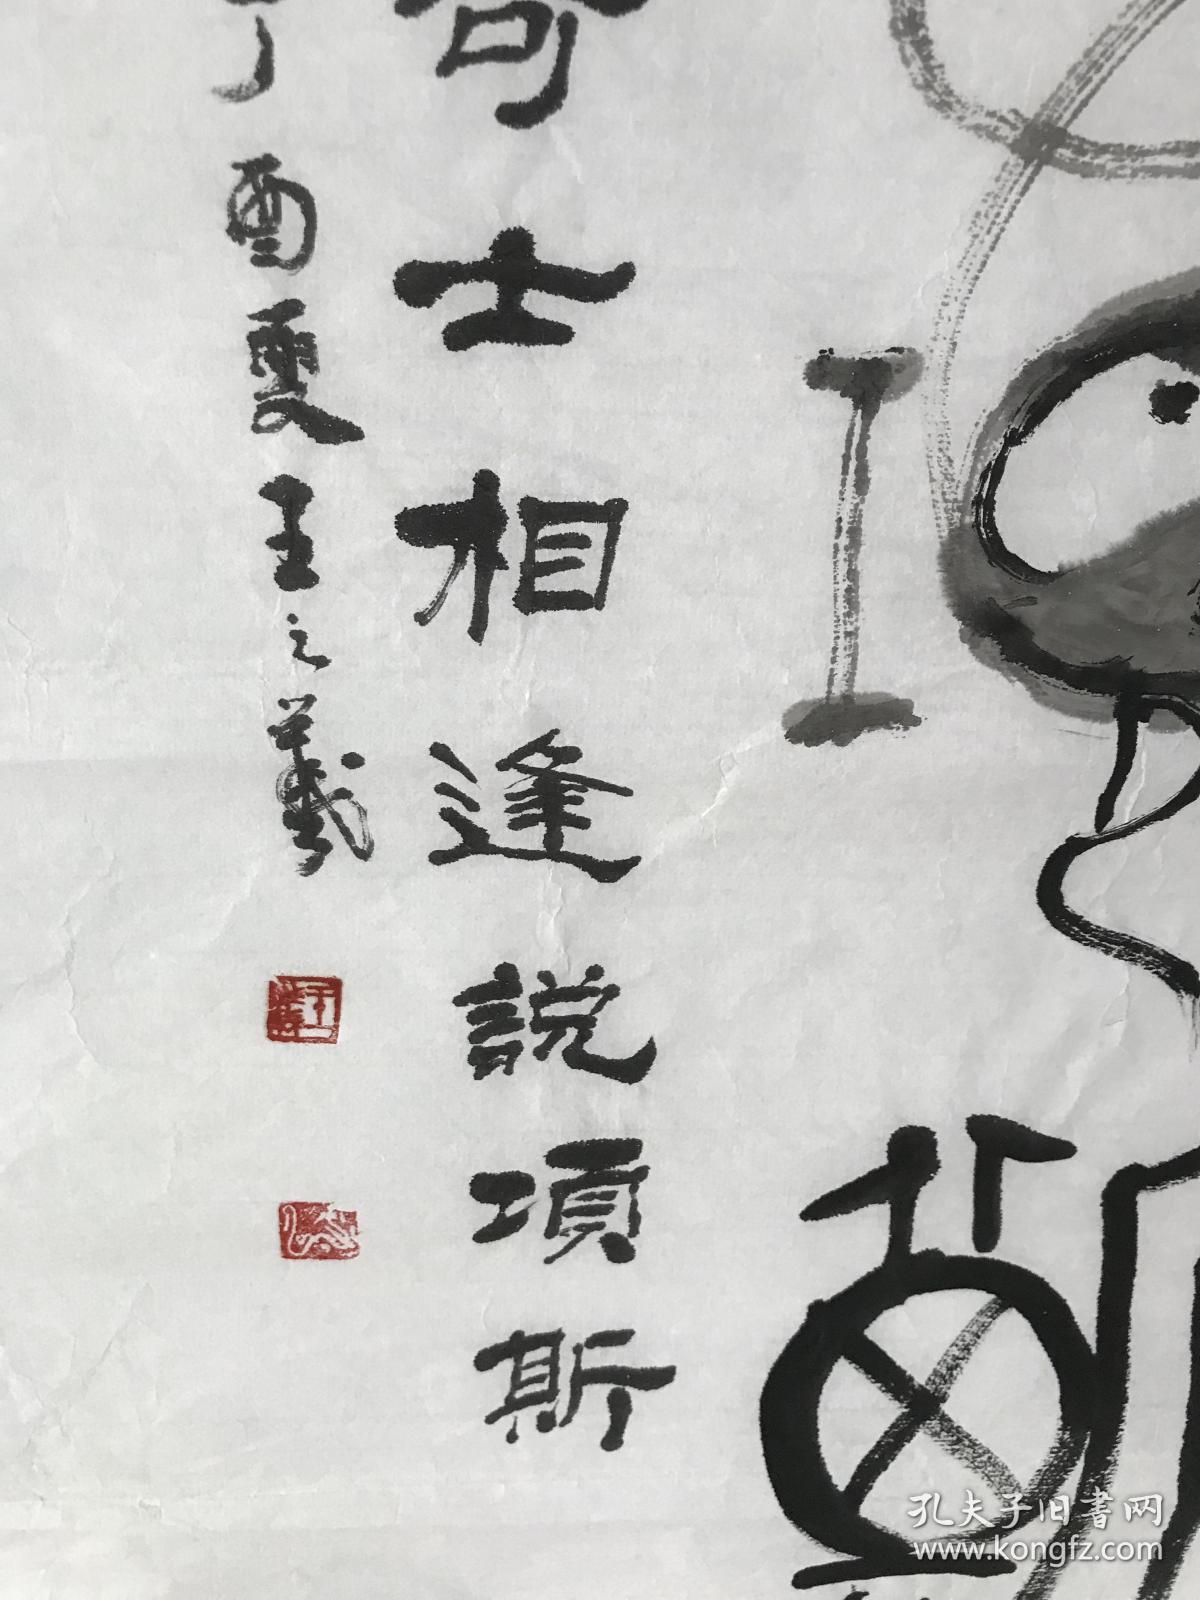 奇士相逢説項斯
丁酉夏王之義
孔夫子旧書网
www.kongfz.com